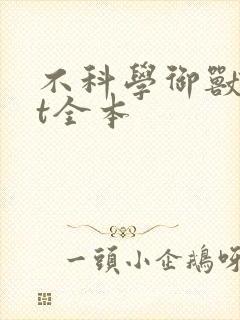 不科學御獸
t全本
一頭小企鵝呀